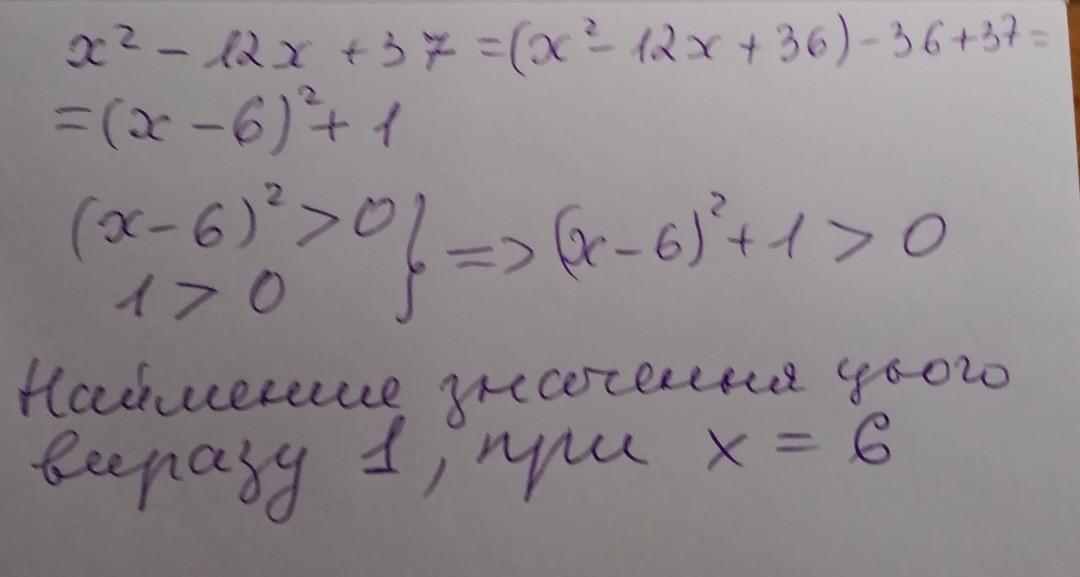 x² - 12x + 37 = (x² - 12x + 36) - 36 + 37 =
= (x - 6)² + 1
(x - 6)² > 0 } => (x - 6)² + 1 > 0
1 > 0
Найменше значення цього
виразу 1, при x = 6